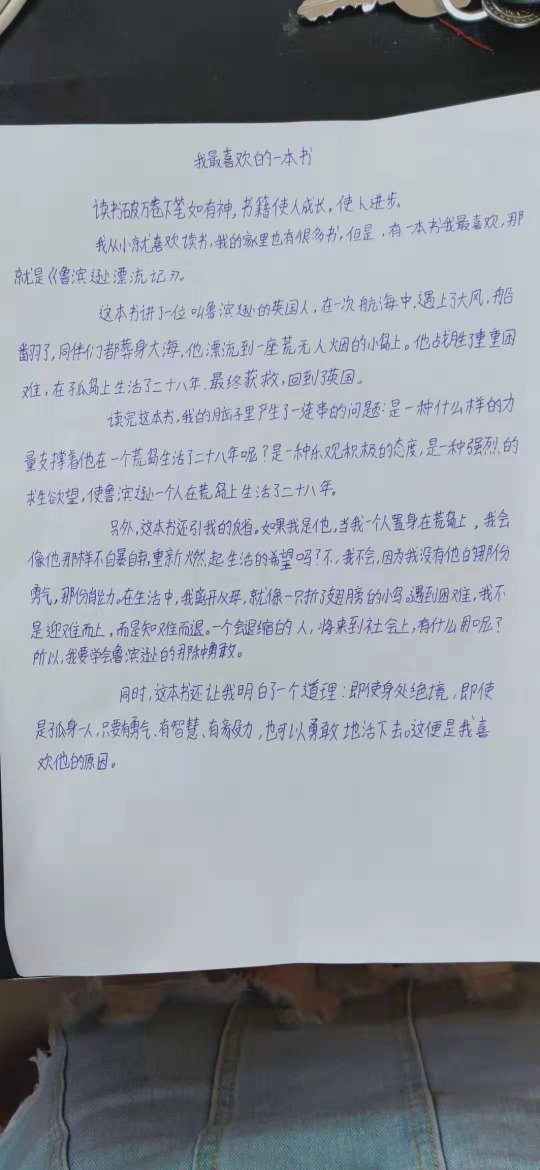 我最喜欢的一本书
读书破万卷下笔如有神,书籍使人成长,使人进步。
我从小就喜欢读书,我的家里也有很多书,但是,有一本书我最喜欢,那
就是《鲁滨逊漂流记》。
这本书讲了一位叫鲁滨逊的英国人,在一次航海中,遇上了大风,船
翻了,同伴们都葬身大海,他漂流到一座荒无人烟的小岛上。他战胜了重重困
难,在孤岛上生活了二十八年,最终获救,回到了英国。
读完这本书,我的脑子里产生了一连串的问题:是一种什么样的力
量支撑着他在一个荒岛生活了二十八年呢?是一种乐观积极的态度,是一种强烈的
求生欲望,使鲁滨逊一个人在荒岛上生活了二十八年。
另外,这本书还引我的反省。如果我是他,当我一个人置身在荒岛上,我会
像他那样不自暴自弃,重新燃起生活的希望吗?不,我不会,因为我没有他的那份
勇气,那份能力。在生活中,我离开父母,就像一只折了翅膀的小鸟。遇到困难,我不
是迎难而上,而是知难而退。一个会退缩的人,将来到社会上,有什么用呢?
所以,我要学会鲁滨逊的那种勇敢。
同时,这本书还让我明白了一个道理:即使身处绝境,即使
是孤身一人,只要有勇气、有智慧、有毅力,也可以勇敢地活下去。这便是我喜
欢他的原因。